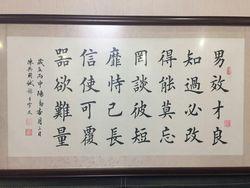 男效才良
知過必改
得能莫忘
罔談彼短
靡恃己長
信使可覆
器欲難量
丙申